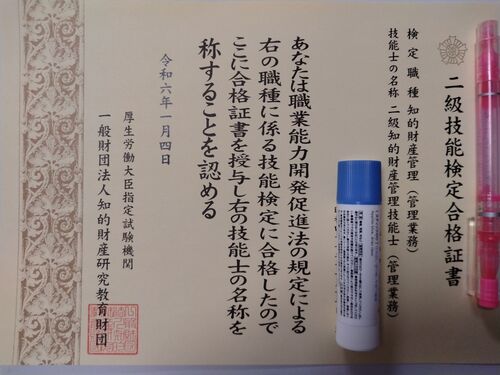 二級技能検定合格証書
検定職種 知的財産管理（管理業務）
技能士の名称 二級知的財産管理技能士（管理業務）
あなたは職業能力開発促進法の規定による
右の職種に係る技能検定に合格したので
ここに合格証書を授与し右の技能士の名称を
称することを認める
令和六年一月四日
厚生労働大臣指定試験機関
一般財団法人知的財産研究教育財団